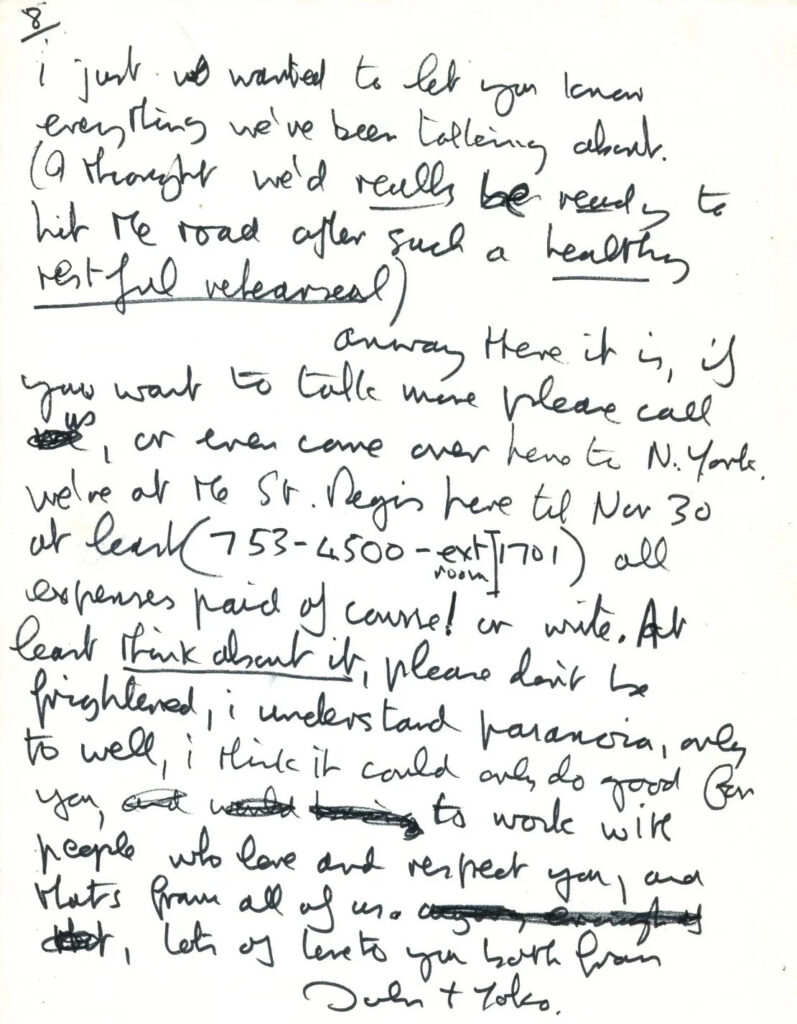 8
i just wanted to let you know
everything we've been talking about.
(I thought we'd really be ready to
hit the road after such a healthy
restful rehearsal)
anway there it is, if
you want to talk more please call
us, or even come over here to N. York.
we're at the St. Regis here til Nov 30
at least (753-4500-ext 1701) all
room
expenses paid of course! or write. At
least think about it, please don't be
frightened, i understand paranoia, only
to well, i think it could only do good for
you, to work with
people who love and respect you, and
thats from all of us.
lots of love to you both from
John + Yoko.